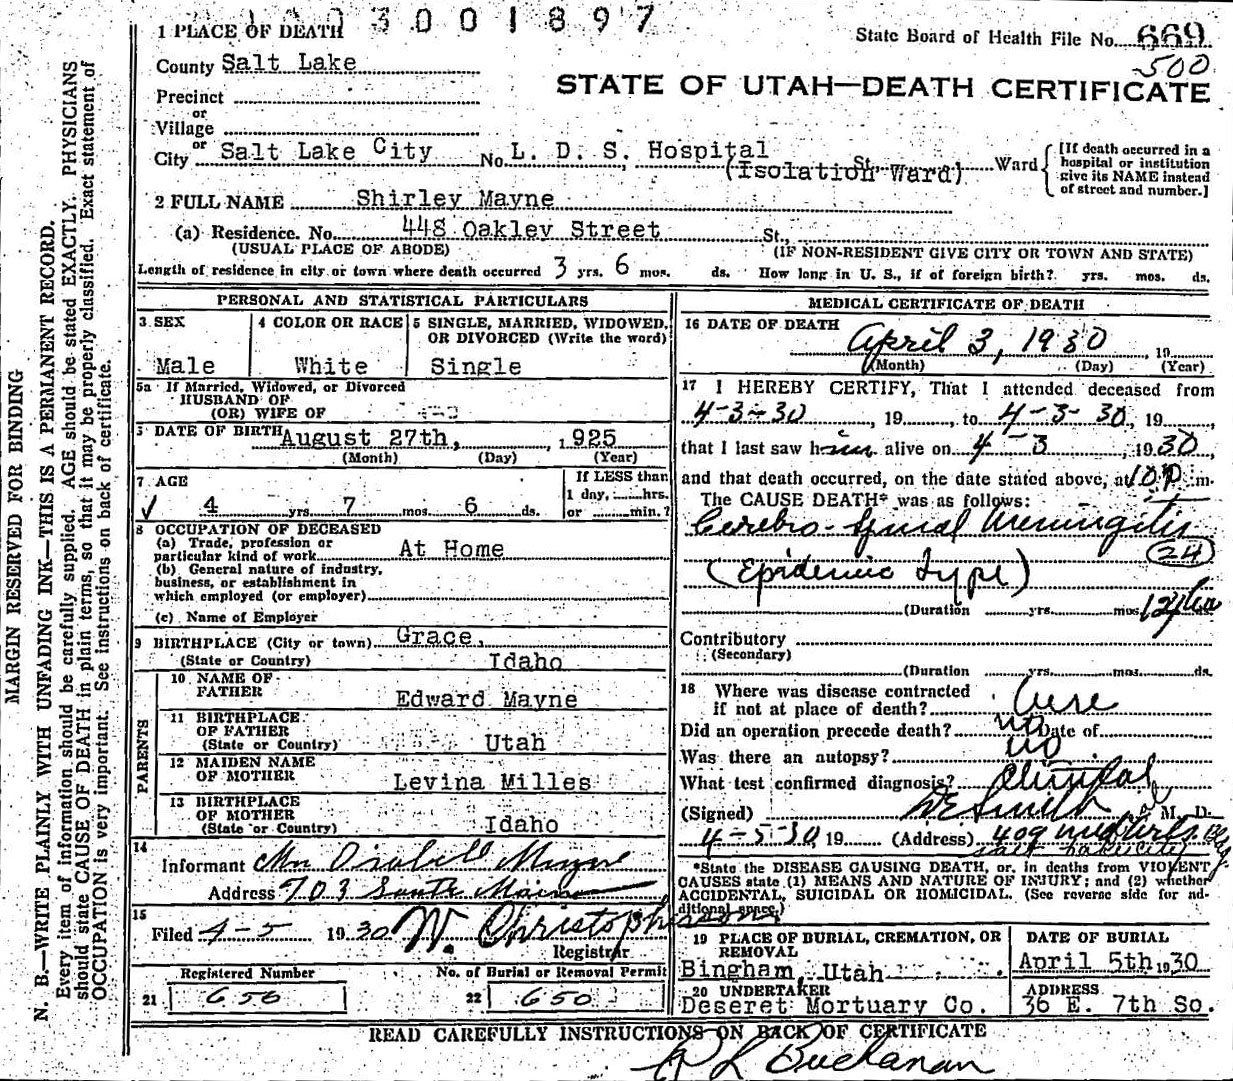 3001897
1 PLACE OF DEATH
State Board of Health File No. 669
500
County Salt Lake
STATE OF UTAH—DEATH CERTIFICATE
Precinct
or
Village
or
City Salt Lake City No. L. D. S. Hospital St., Ward
(Isolation Ward)
[If death occurred in a
hospital or institution
give its NAME instead
of street and number.]
2 FULL NAME Shirley Mayne
(a) Residence. No. 448 Oakley Street St.,
(USUAL PLACE OF ABODE) (IF NON-RESIDENT GIVE CITY OR TOWN AND STATE)
Length of residence in city or town where death occurred 3 yrs. 6 mos. ds. How long in U. S., if of foreign birth? yrs. mos. ds.
PERSONAL AND STATISTICAL PARTICULARS
3 SEX
Male
4 COLOR OR RACE
White
5 SINGLE, MARRIED, WIDOWED,
OR DIVORCED (Write the word)
Single
5a If Married, Widowed, or Divorced
HUSBAND OF
(OR) WIFE OF
DATE OF BIRTH August 27th, 1925
(Month) (Day) (Year)
7 AGE
4 yrs. 7 mos. 6 ds.
If LESS than
1 day, hrs.
or min.?
8 OCCUPATION OF DECEASED
(a) Trade, profession or
particular kind of work At Home
(b) General nature of industry,
business, or establishment in
which employed (or employer)
(c) Name of Employer
9 BIRTHPLACE (City or town) Grace,
(State or Country) Idaho
PARENTS
10 NAME OF
FATHER Edward Mayne
11 BIRTHPLACE
OF FATHER
(State or Country) Utah
12 MAIDEN NAME
OF MOTHER Levina Milles
13 BIRTHPLACE
OF MOTHER
(State or Country) Idaho
14
Informant Mayne
Address 703
15
Filed 4-5 1930 W. Christopherson
Registrar
Registered Number
21 650
No. of Burial or Removal Permit
22 650
MEDICAL CERTIFICATE OF DEATH
16 DATE OF DEATH
April 3, 1930, 19
(Month) (Day) (Year)
17 I HEREBY CERTIFY, That I attended deceased from
4-3-30, 19, to 4-3-30, 19,
that I last saw him alive on 4-3 1930,
and that death occurred, on the date stated above, at 10 P m.
The CAUSE DEATH* was as follows:
Cerebro-Spinal Meningitis
24
(Epidemic type)
(Duration yrs. mos.
Contributory
(Secondary)
(Duration yrs. mos. ds.
18 Where was disease contracted
if not at place of death?
Did an operation precede death? no Date of
Was there an autopsy? no
What test confirmed diagnosis? Clinical
(Signed) Smith M. D.
4-5-30, 19 (Address) 409
Salt Lake City
*State the DISEASE CAUSING DEATH, or, in deaths from VIOLENT
CAUSES state (1) MEANS AND NATURE OF INJURY; and (2) whether
ACCIDENTAL, SUICIDAL OR HOMICIDAL. (See reverse side for ad-
ditional space.)
19 PLACE OF BURIAL, CREMATION, OR
REMOVAL
Bingham, Utah
DATE OF BURIAL
April 5th, 1930
20 UNDERTAKER
Deseret Mortuary Co.
ADDRESS
36 E. 7th So.
READ CAREFULLY INSTRUCTIONS ON BACK OF CERTIFICATE
Buchanan
MARGIN RESERVED FOR BINDING
N. B.—WRITE PLAINLY WITH UNFADING INK—THIS IS A PERMANENT RECORD.
Every item of information should be carefully supplied. AGE should be stated EXACTLY. PHYSICIANS
should state CAUSE OF DEATH in plain terms, so that it may be properly classified. Exact statement of
OCCUPATION is very important. See instructions on back of certificate.